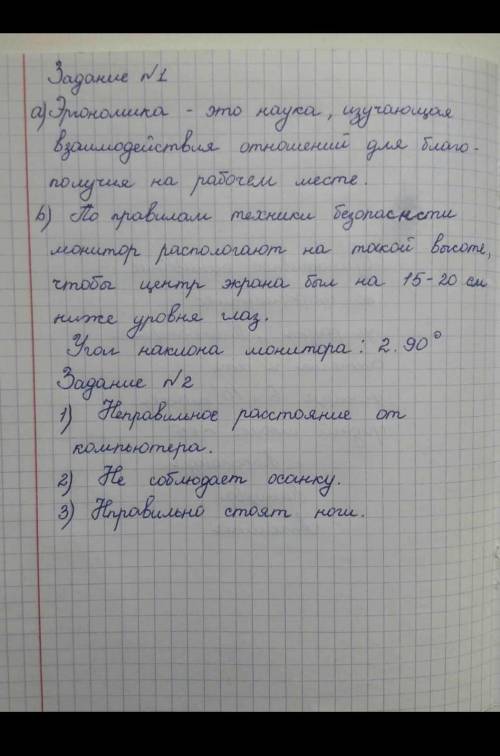 Задание №1
а) Эргономика - это наука, изучающая
взаимодействия отношений для благо-
получия на рабочем месте.
b) По правилам техники безопасности
монитор распологают на такой высоте,
чтобы центр экрана был на 15-20 см
ниже уровня глаз.
Угол наклона монитора: 2. 90°
Задание №2
1) Неправильное расстояние от
компьютера.
2) Не соблюдает осанку.
3) Нправильно стоят ноги.